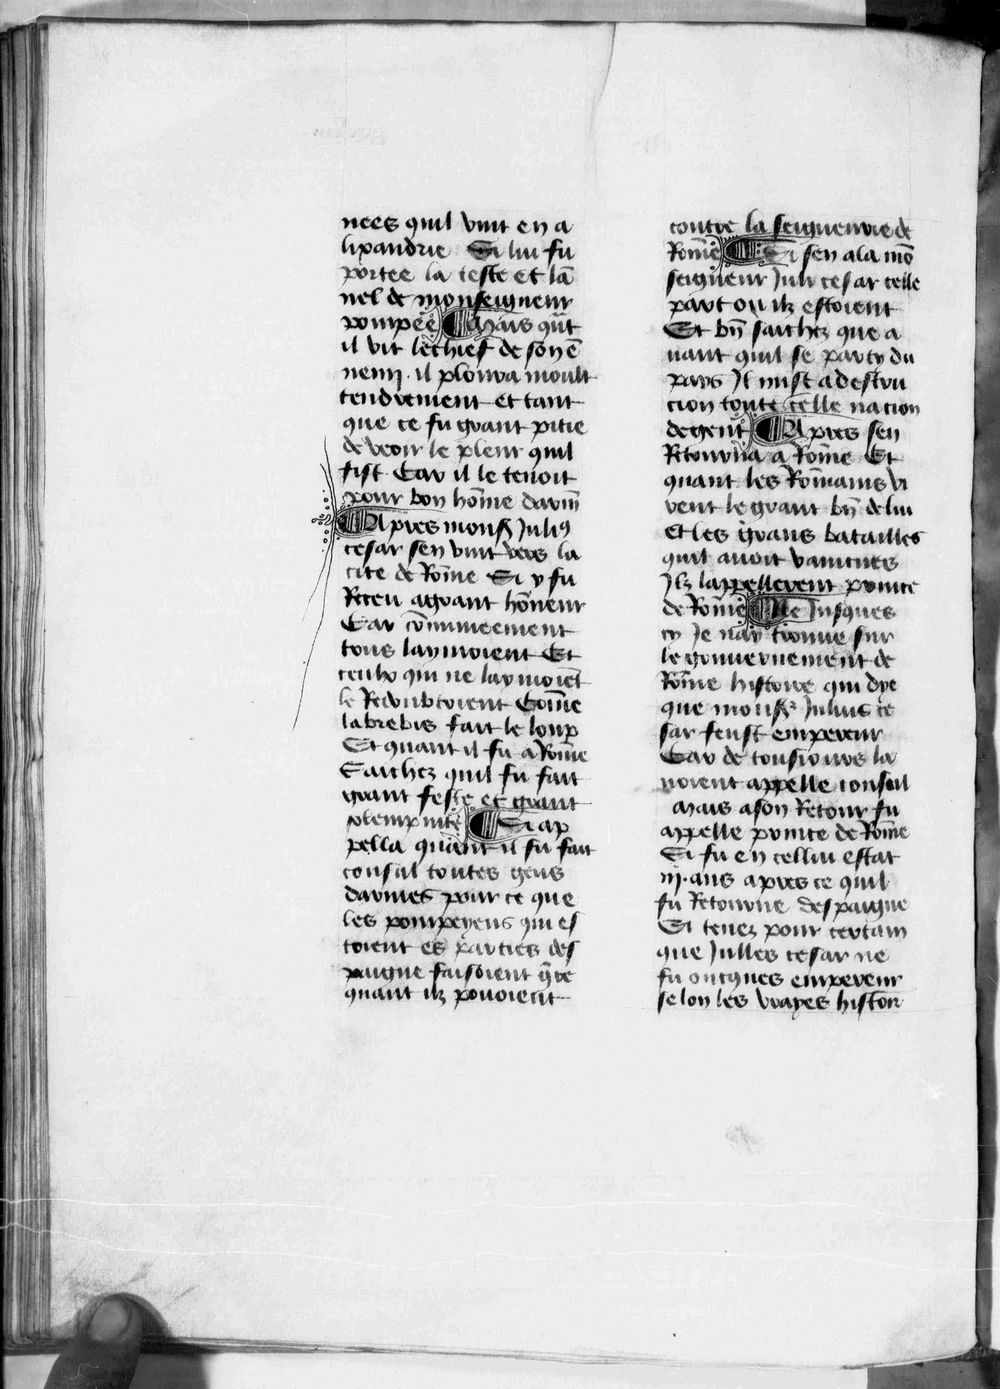 nees quil vint en a
lixandrie Si lui fu
portee la teste et lã
nel de monseigneur
pompee Mais qñt
il vit le chief de son ẽ
nemj . il ploura moult
tendrement et tant
que ce fu grant pitie
de veoir le pleur quil
fist Car il le tenoit
pour bon hõme darm̃
Apres mons̃ Juliꝯ
cesar sen vint vers la
cite de Rõme Si y fu
Receu a grant hõneur
Car cõmuneement
tous laymoient Et
ceulx qui ne laymoiẽt
le Redoubtoient Cõme
la brebis fait le loup
Et quant il fu a Rõme
Saichez quil fu fait
grant feste et grant
solempnite Si ap
pella quant il fu fait
consul toutes gens
darmes pour ce que
les pompeyens qui es
toient es parties des
paigne faisoient g̃re
quant ilz pouoient
contre la seigneurie de
Rõme Si sen ala mõ
seigneur Juli cesar celle
part ou ilz estoient
Et bñ saichez que a
uant quil se party du
pays Il mist a destru
cion toute celle nacion
de gent Apres sen
Retourna a Rõme Et
quant les Rõmains vi
rent le grant bñ de lui
et les grans batailles
quil auoit vaincues
Ilz lappellerent prince
de Rõme Ne Jusques
cy Je nay trouue sur
le gouuernement de
Rõme histoire qui dye
que mons̃ Julius ce
sar feust empereur
Car de tousiours la
uoient appelle consul
Mais a son Retour fu
appelle prince de Rõme
Si fu en cellui estat
iij. ans apres ce quil
fu Retourne despaigne
Si tenez pour certain
que Julles cesar ne
fu oncques empereur
selon les vrayes histoir